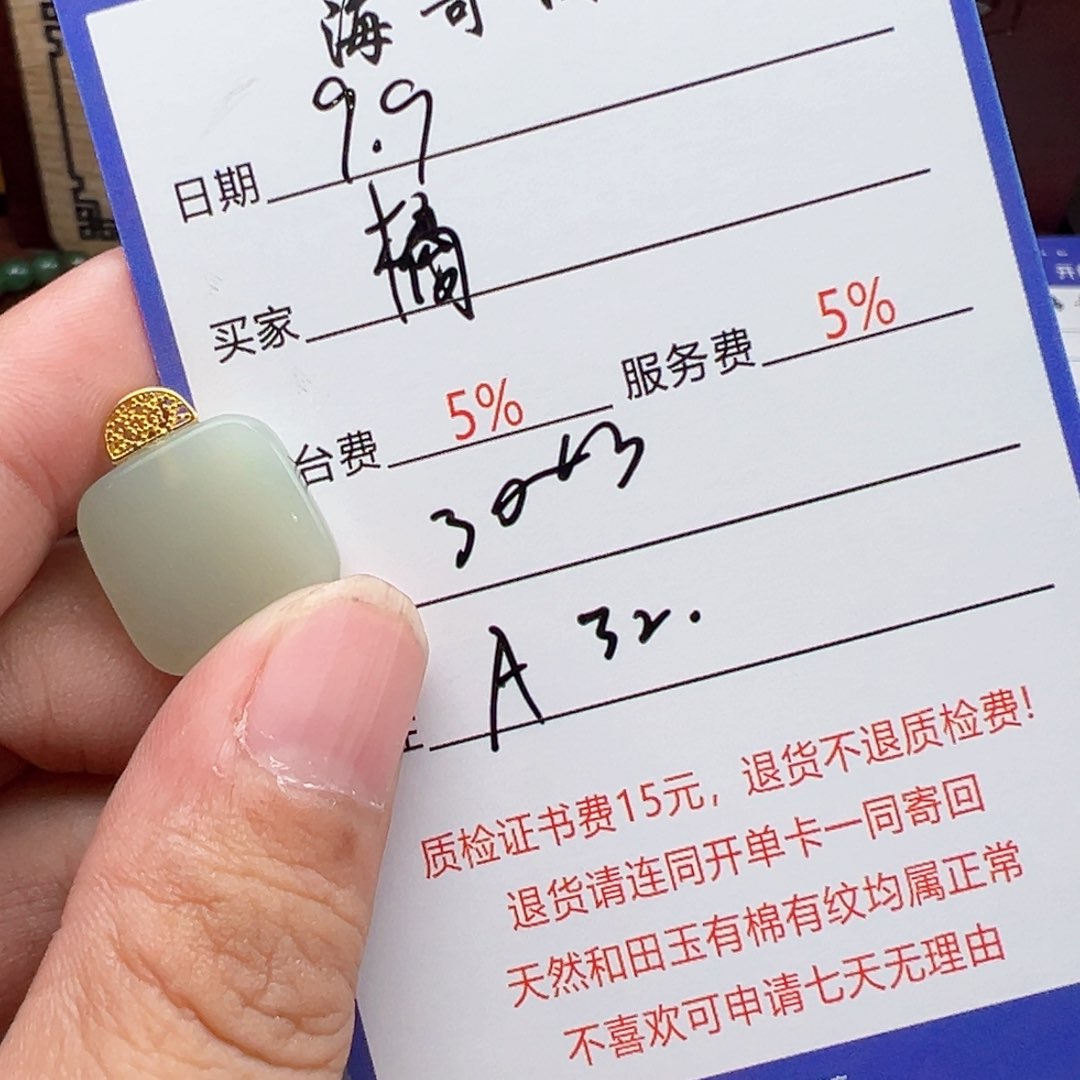 海哥
日期 9.9
买家 橘
台费 5% 服务费 5%
30+15
A 32.
质检证书费15元，退货不退质检费！
退货请连同开单卡一同寄回
天然和田玉有棉有纹均属正常
不喜欢可申请七天无理由